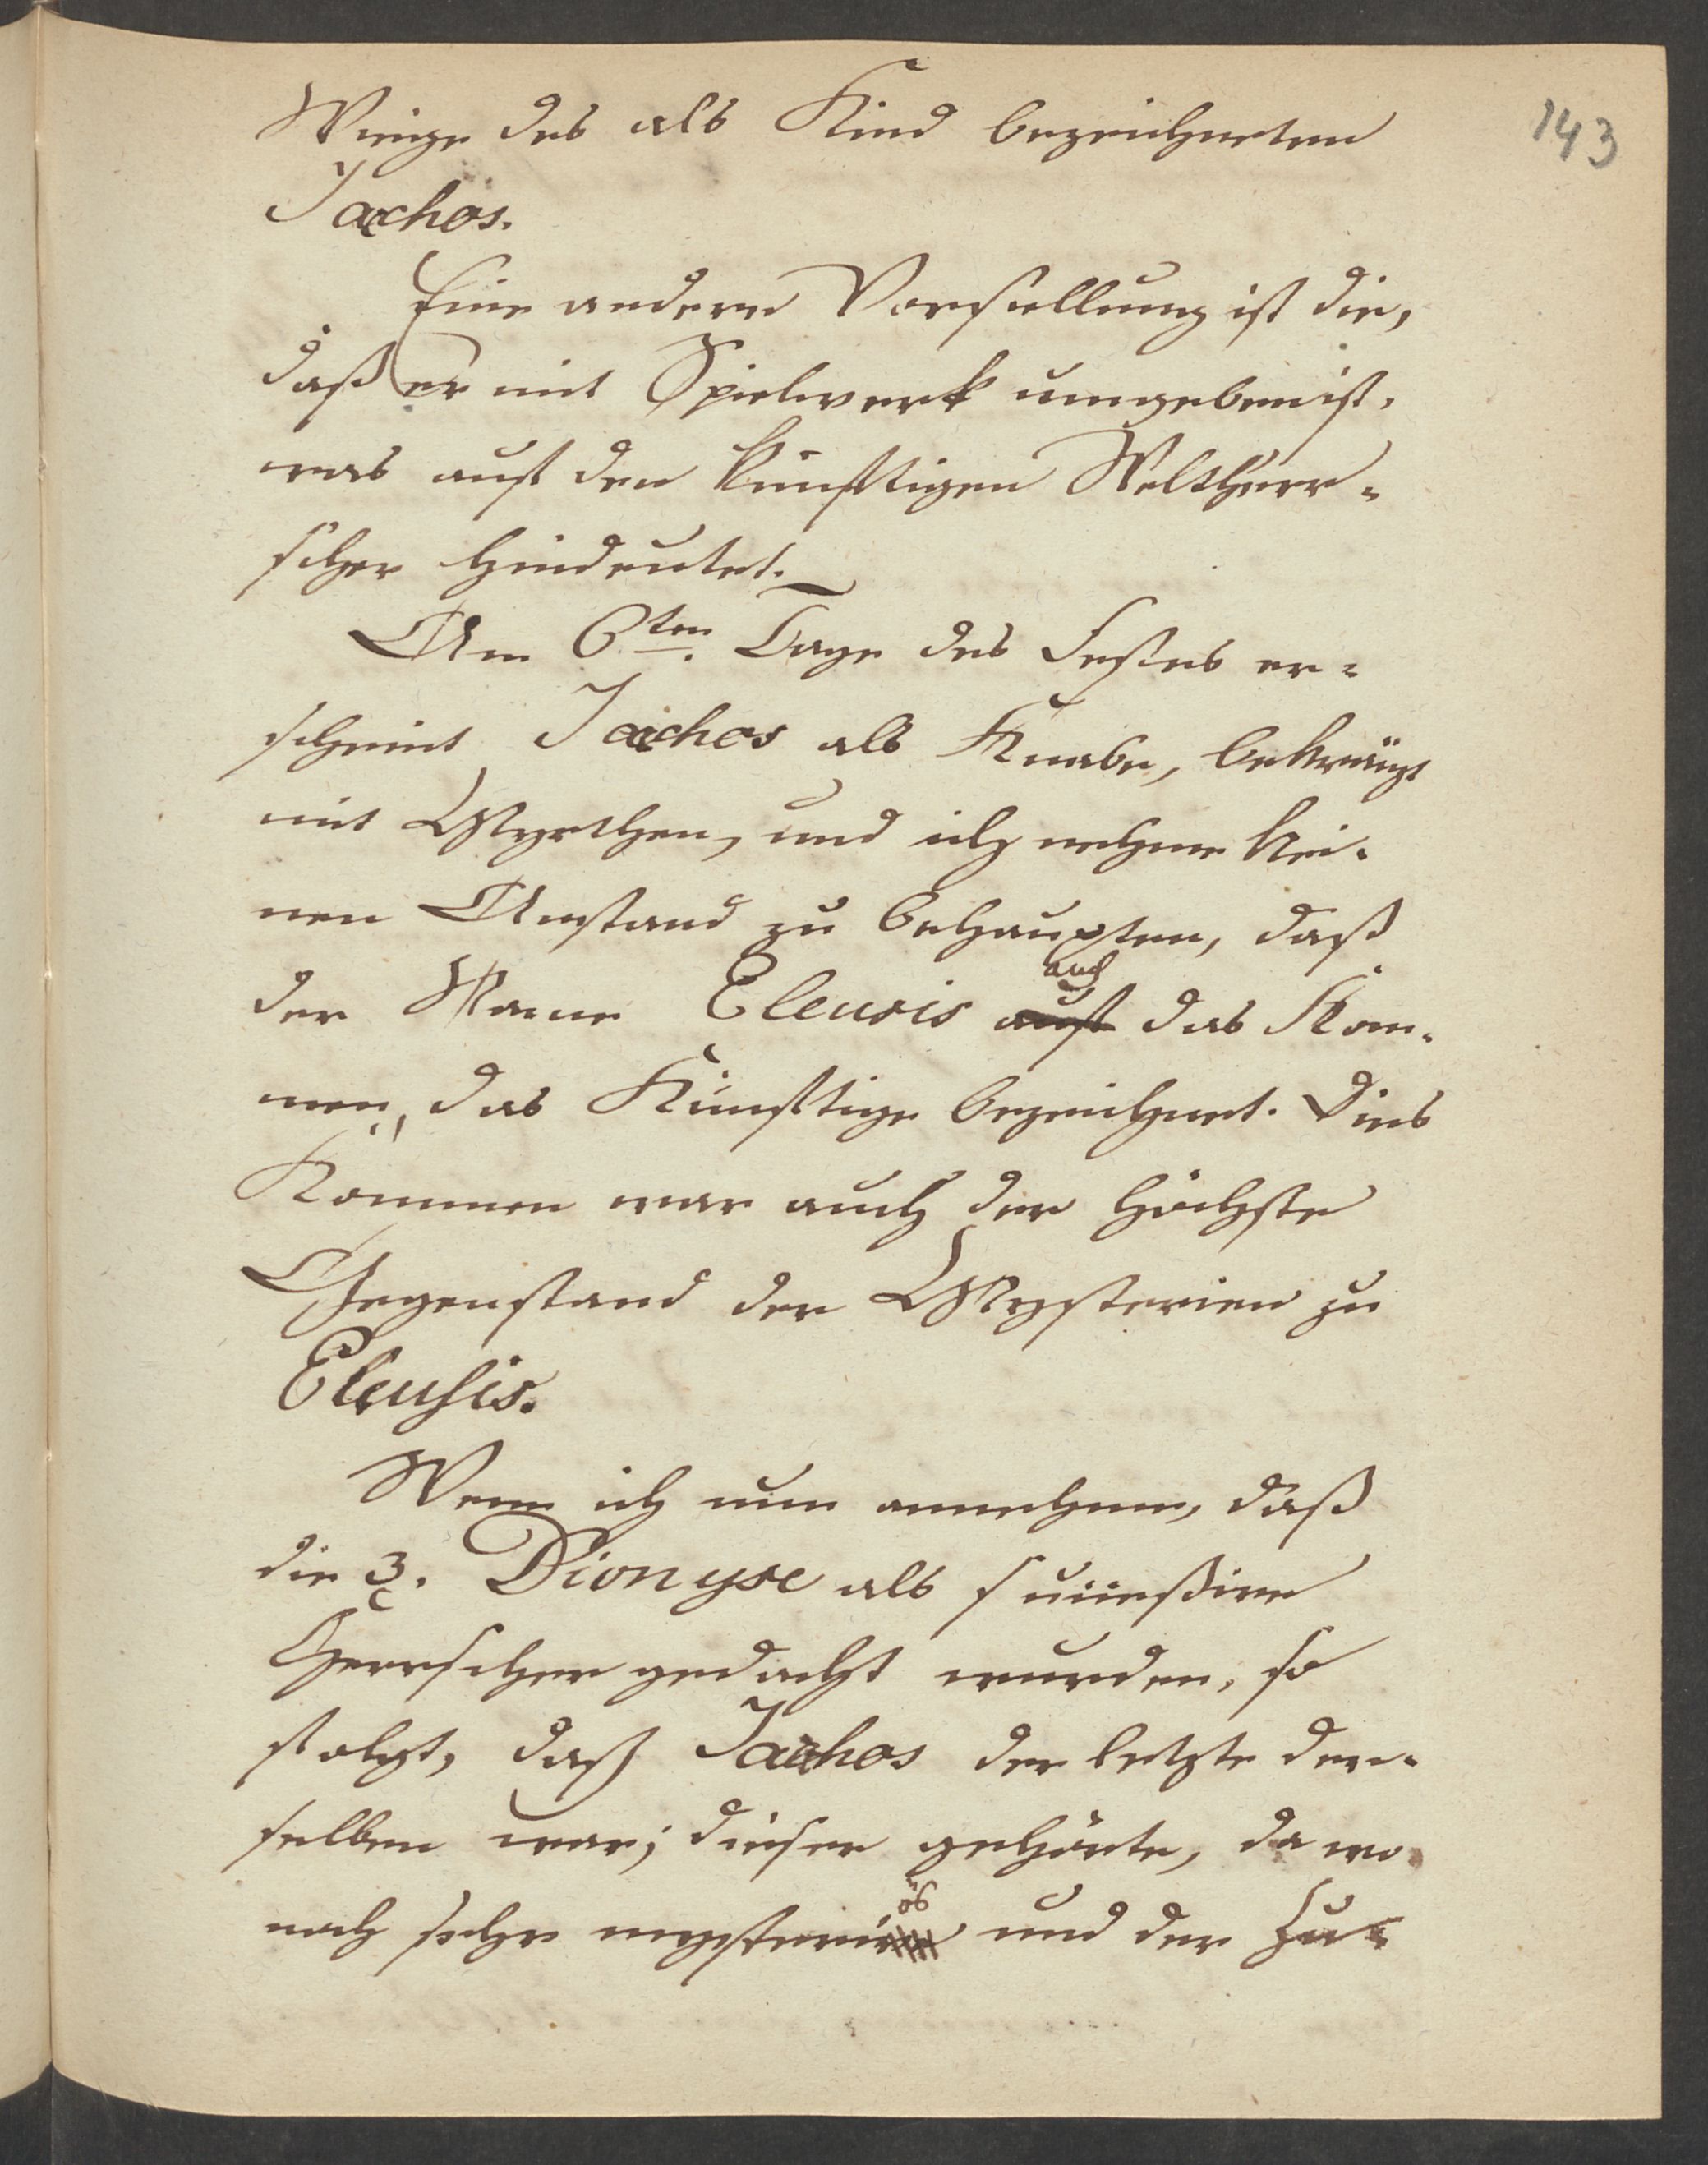 143
Wiege des als Kind bezeichneten
Jachos.
Eine andere Vorstellung ist die,
daß er mit Spielwerk umgeben ist,
was auf den künftigen Weltherr-
scher hindeutet.
Am 6ten. Tage des Festes er-
scheint Jachos als Knabe, bekränzt
mit Myrthen, und ich nehme kei-
nen Anstand zu behaupten, daß
auch
der Name Eleusis auf das Kom-
men, das Künftige bezeichnet. Dies
Kommen war auch der höchste
Gegenstand der Mysterien zu
Eleusis.
Wenn ich nun annehme, daß
die 3. Dionyse als
Herrscher gedacht wurden, so
folgt, daß Jachos der letzte der-
selben war; dieser gehörte, da wo
ös
noch sehr mysteri und der Zu-